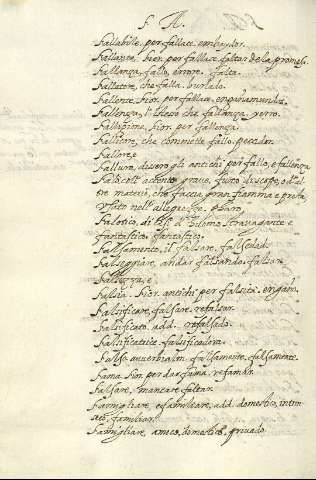 F. A.
Fallabile, per fallace
Fallanza, fior. per fallace, faltar de la promesa
Fallanza, fallo, errore. falta.
Fallatore, che falla. burlalo.
Fallente, fior. per fallace, engañamundo.
Fallenza, l'istesso che fallanza. yerro.
Falligione, fior. per fallenza.
Fallitore, che commette fallo. pecador.
Fallore, e
Fallura, dissero gli antichi per fallo, e fallenza
Falò coll' accento grave, fuoco di stipe, o d'al-
tre materie, che faccia gran fiamma e presta.
Usato nell' allegrezze.
Falotico, di fil. d'huomo stravagante e
fantastico. fantastico.
Falsamento, il falsare. falsedad.
Falseggiare, andar falsando. falsar
Falsezza, e
Falsia. fior. antichi per falsità. engaño.
Falsificare, falsare. refalsar.
Falsificato. add. refalsado.
Falsificatrice. falsificadora.
Falso avverbialm. falsamente. falsamente.
Fama fior. per dar fama.
Falsare, mancare. faltar.
Famigliare, e familiare, add. domestico, intrin
seco. familiar.
Famigliare, amico, domestico. privado.